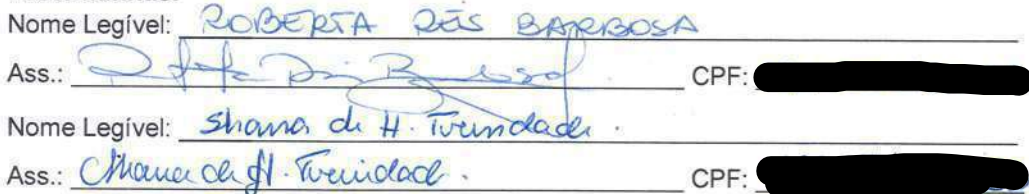 Nome Legível: ROBERTA REIS BARBOSA
Ass.: CPF:
Nome Legível: Shana de H. Trindade.
Ass.: Shana de H. Trindade. CPF: